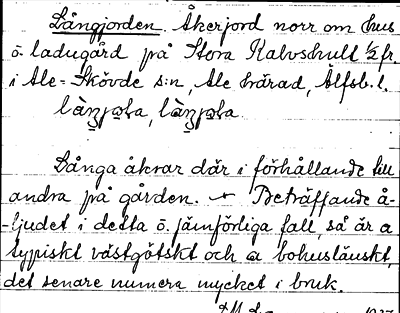 Långjorden. Åkerjord norr om hus
o. ladugård på Stora Kalvshult ½ fr.
i Ale-Skövde s:n, Ale härad, Älfsb. l.
Långa åkrar där i förhållande till
andra på gården. Beträffande å-
-ljudet i detta o. jämförliga fall, så är a
typiskt västgötskt och a bohuslänskt,
det senare numera mycket i bruk.